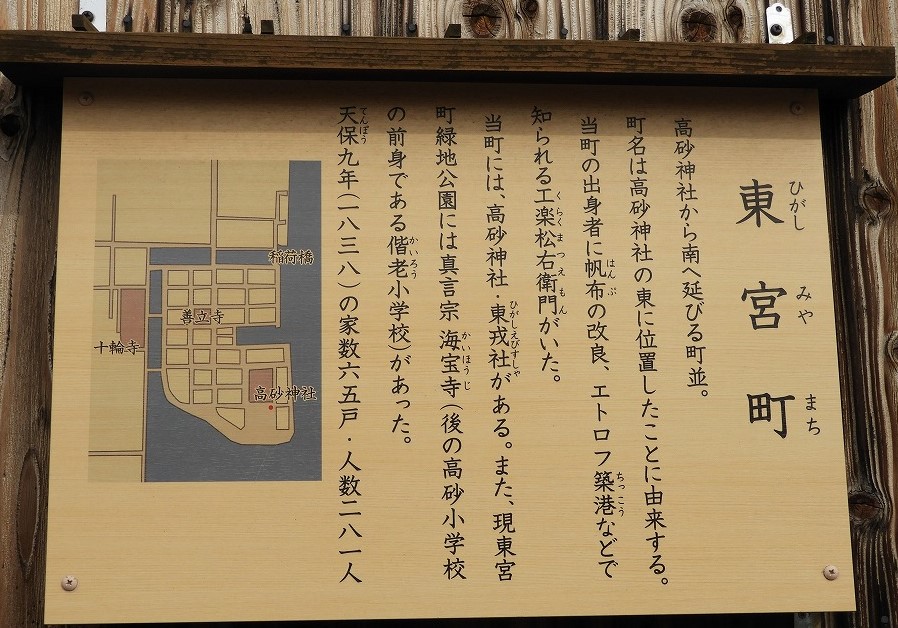 東宮町
ひがし みや まち
高砂神社から南へ延びる町並。
町名は高砂神社の東に位置したことに由来する。
当町の出身者に帆布の改良、エトロフ築港などで
はんぷ ちっこう
知られる工楽松右衛門がいた。
くらくまつえもん
当町には、高砂神社・東戎社がある。また、現東宮
ひがしえびすしゃ
町緑地公園には真言宗 海宝寺(後の高砂小学校
かいほうじ
の前身である偕老小学校)があった。
かいろう
天保九年(一八三八)の家数六五戸・人数二八一人
てんぽう
稲荷橋
善立寺
十輪寺
高砂神社